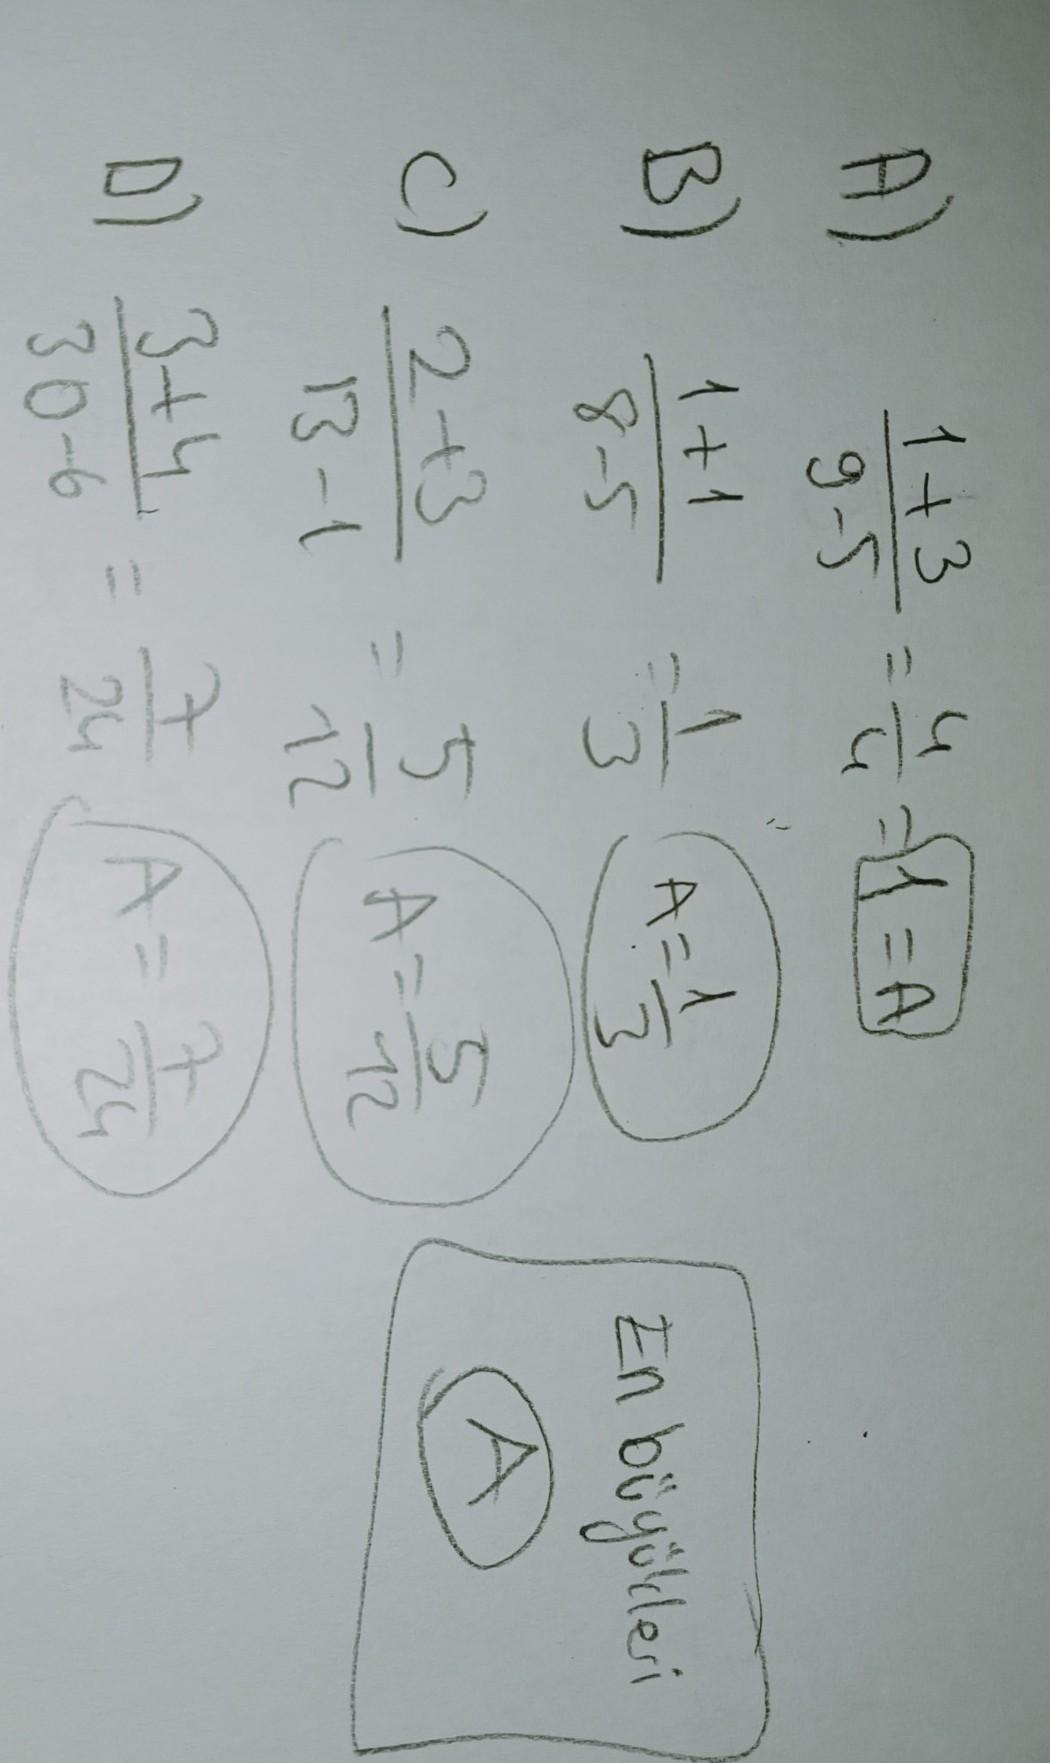 A) 1+3/9-5 = 4/4 = 1 = A
B) 1+1/8-5 = 1/3 A = 1/3
C) 2+3/13-1 = 5/12 A = 5/12
D) 3+4/30-6 = 7/24 A = 7/24
En büyükleri
A